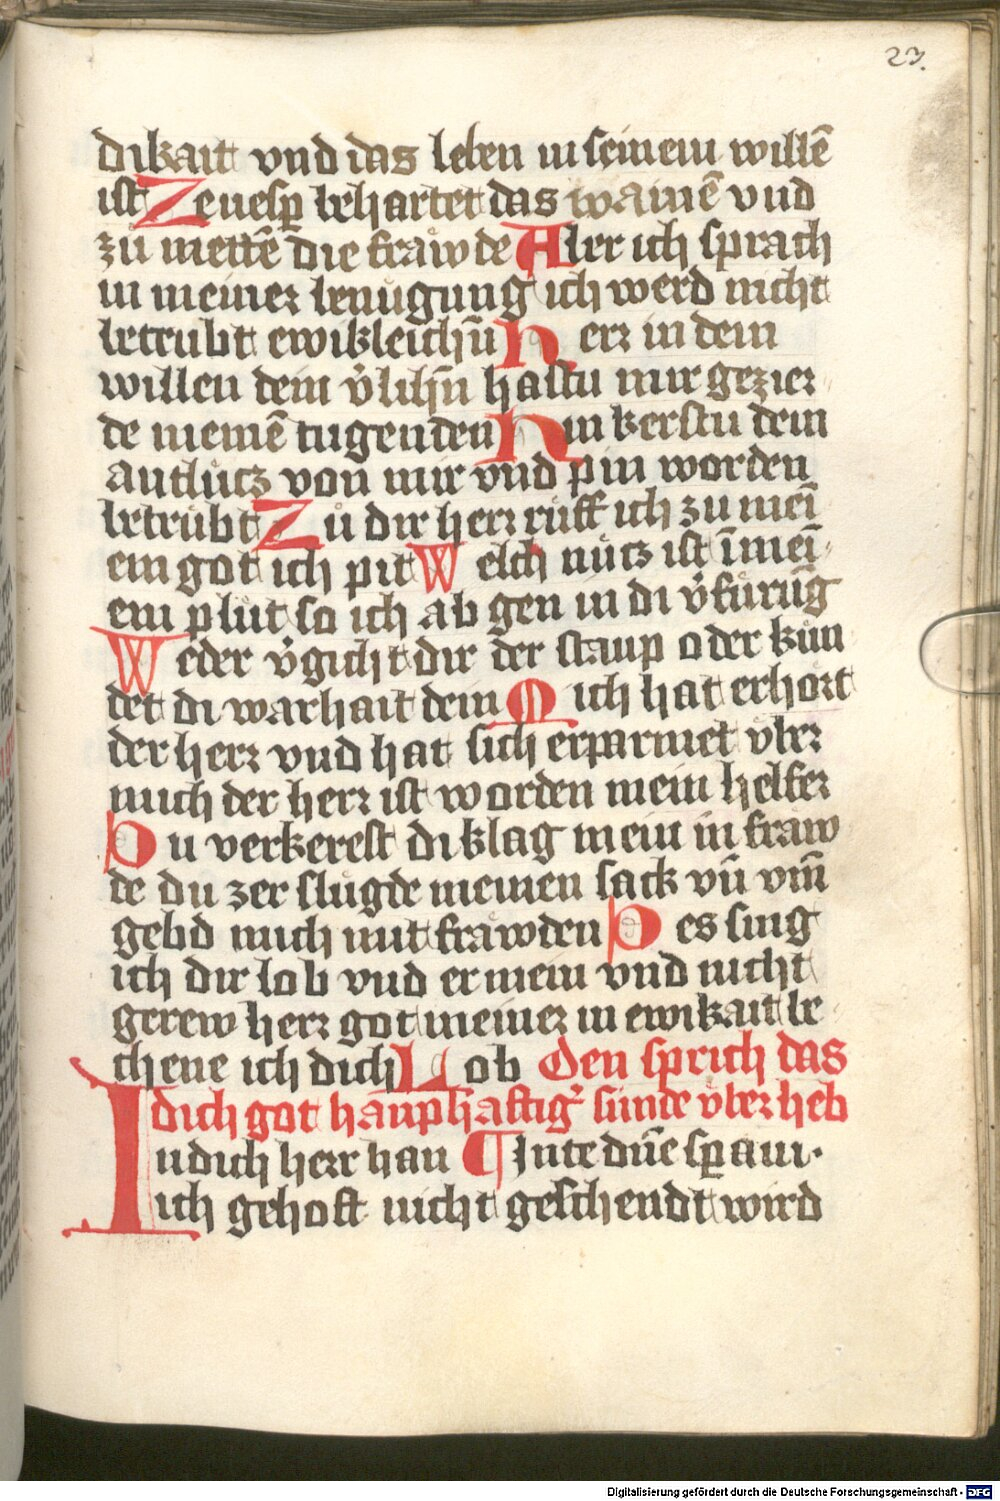 23.
dikait vnd das leben in seinem willē
ist Zeuesp̲ behartet das wainē vnd
zů mettē die fraẘde Aber ich sprach
in meiner benůgung ich werd nicht
betrubt ewikleichn̄ Herr in dem
willen dem v̓lihn̄ hastu mir gezier
de meinē tugenden Hin kerstu dein
antlůcz von mir vnd pin worden
betrůbt Zů dir herr růff ich zu mei
em got ich pit Welch nůtz ist im̄ei
em plůt so ich ab gen in di v̓fůrūg
Weder v̓gicht dir der staup oder kůn
det di warhait dein Mich hat erhört
der herr vnd hat sich erparmet vber
mich der herr ist worden mein helfer
Du verkerest di klag mein in fraẘ
de du zer slůgde meinen sack vn̄ vm̄
gebd mich mit fraẘden Des sing
ich dir lob vnd er mein vnd nicht
gerew herr got meiner in ewikait be
chene ich dich Lob Den sprich das
dich got haupthaftigr̓ sunde vber heb
Indich herr han ¶ In te dn̄e sp̲aui.
ich gehoft nicht geschendt wird
Digitalisierung gefördert durch die Deutsche Forschungsgemeinschaft - DFG